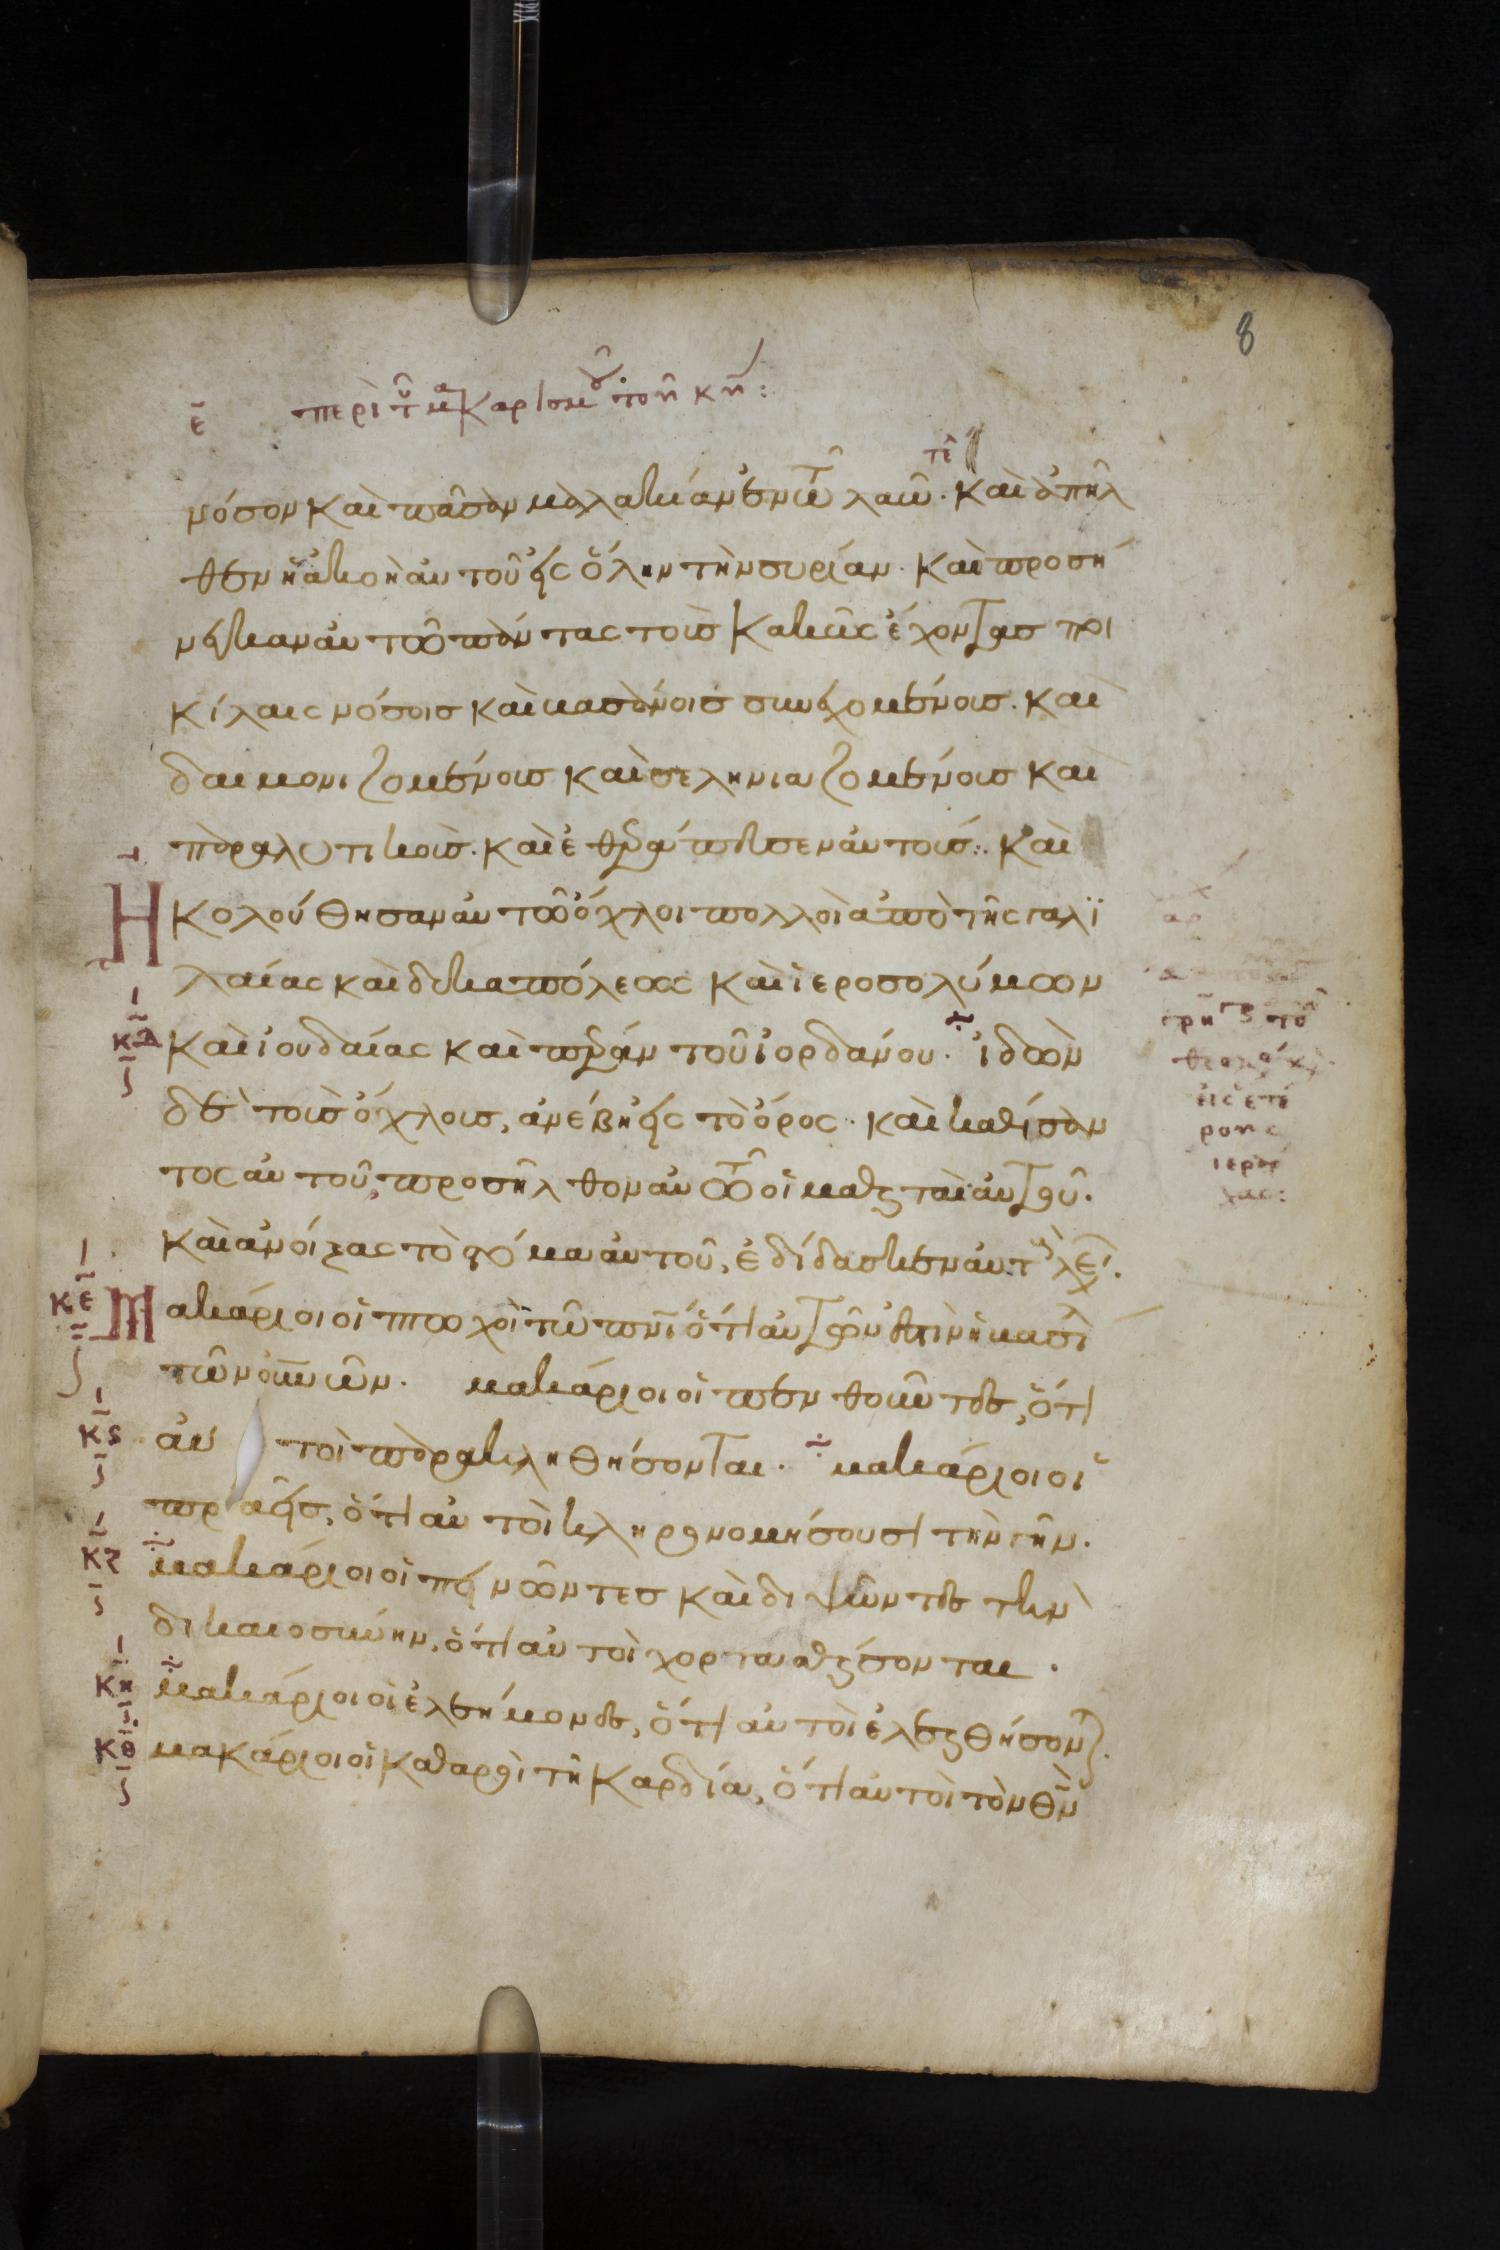 ε̄ περὶ τ(οῦ) μακαρισμοῦ
τε
νόσον καὶ πᾶσαν μαλακίαν ἐν τῶ λαῶ. καὶ ἀπῆλ
θεν ἡ ἀκοὴ αὐτοῦ εἰς ὅλην τὴν συρίαν. καὶ προσή
νεγκαν αὐτῶ πάντας τοὺς κακῶς ἔχοντας ποι
κίλαις νόσοις καὶ βασάνοις συνεχομένους. καὶ
δαιμονιζομένους καὶ σεληνιαζομένους καὶ
παραλυτικούς. καὶ ἐθεράπευσεν αὐτούς: καὶ
Ηκολούθησαν αὐτῶ ὄχλοι πολλοὶ ἀπὸ τῆς γαλϊ
λαίας καὶ δεκαπόλεως καὶ ἱεροσολύμων
κ̄δ̄ καὶ ἰουδαίας καὶ πέραν τοῦ ἰορδάνου. ἰδὼν
δὲ τοὺς ὄχλους, ἀνέβη εἰς τὸ ὄρος. καὶ καθίσαν
τος αὐτοῦ, προσῆλθον αὐτῶ οἱ μαθηταὶ αὐτοῦ.
καὶ ἀνοίξας τὸ στόμα αὐτοῦ, ἐδίδασκεν αὐτ λέγ.
κ̄ε̄ Μακάριοι οἱ πτωχοὶ τῶ πνι ὅτι αὐτῶν ἐστὶν ἡ βασι
τῶν οὐνῶν. μακάριοι οἱ πενθοῦντες, ὅτι
κ̄ς̄ αὐτοὶ παρακληθήσονται. μακάριοι οἱ
πραεῖς, ὅτι αὐτοὶ κληρονομήσουσι τὴν γῆν.
κ̄ζ̄ μακάριοι οἱ πεινῶντες καὶ διψῶντες τὴν
δικαιοσύνην, ὅτι αὐτοὶ χορτασθήσονται.
κ̄η̄ μακάριοι οἱ ἐλεήμονες, ὅτι αὐτοὶ ἐλεηθήσοντ
κ̄θ̄ μακάριοι οἱ καθαροὶ τῆ καρδία, ὅτι αὐτοὶ τὸν θν
8